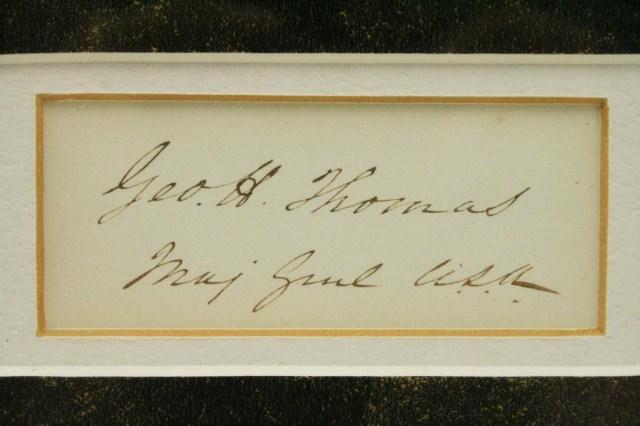 Geo. H. Thomas
Maj Genl U.S.A.